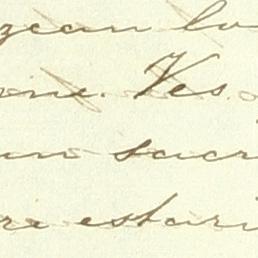 zean lo
one. Ves.
un sacri
re estari